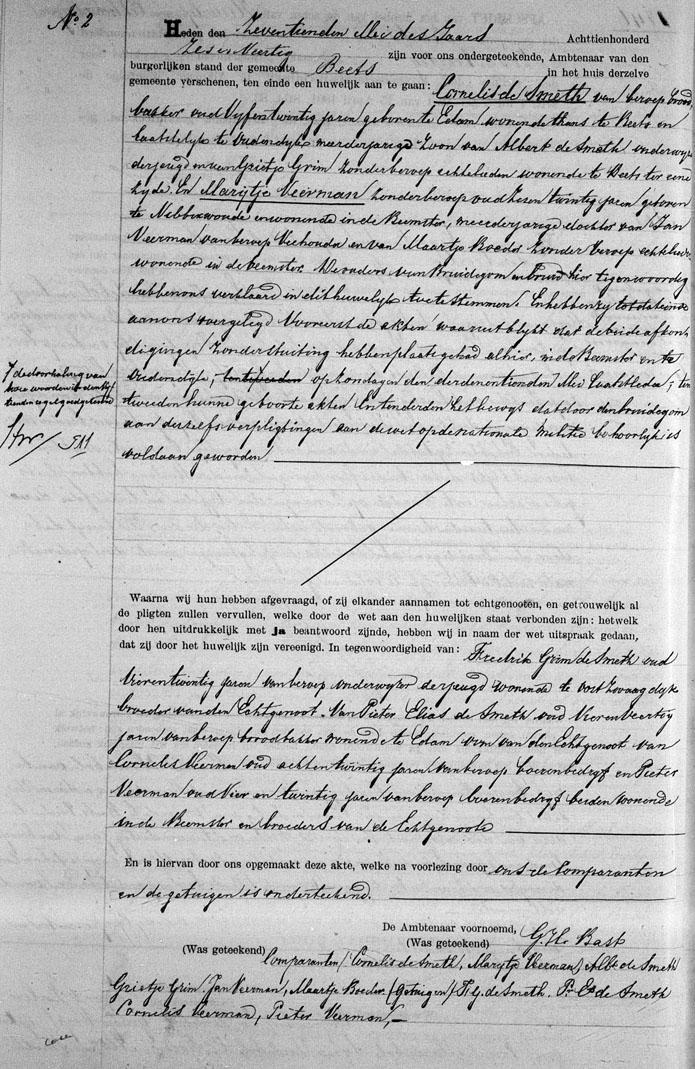 No 2
Heden den Zeventienden Mei des Jaars Achttienhonderd
Zes en Veertig zijn voor ons ondergeteekende, Ambtenaar van den
burgerlijken stand der gemeente Beets in het huis derzelve
gemeente verschenen, ten einde een huwelijk aan te gaan: Cornelis de Smeth van beroep brood
bakker oud Vyfentwintig jaren geboren te Edam wonende thans te Beets en
laatstelyk te meerderjarige Zoon van Albert de Smeth onderwyzer
der jeugd en van Grietje Grim zonder beroep echtelieden wonende te Beets ter eene
zyde. En Marijtje Veerman zonder beroep oud Zes en twintig jaren geboren
te Nibbixwoude en wonende in de Beemster, meerderjarige dochter van Jan
Veerman van beroep Veehouder en van Maartje Boeder zonder beroep echtelieden
wonende in de Beemster. De ouders van Bruidegom en bruid hier tegenwoordig
hebben ons verklaard in dit huwelyk toe te stemmen. En hebben zy tot dat einde
aan ons overgelegd Vooreerst de akten waaruit blykt dat de beide afkon-
digingen zonder stuiting hebben plaats gehad alhier, in de Beemster en te
op Zondagen den derden en tienden Mei laatstleden; ten
tweeden hunne geboorte akten En ten derden het bewys dat door den bruidegom
aan deszelfs verpligtingen aan de wet op de nationale militie behoorlyk is
voldaan geworden
de doorhaling van
twee woorden in de
goedgekeurd
Waarna wij hun hebben afgevraagd, of zij elkander aannamen tot echtgenooten, en getrouwelijk al
de pligten zullen vervullen, welke door de wet aan den huwelijken staat verbonden zijn: hetwelk
door hen uitdrukkelijk met ja beantwoord zijnde, hebben wij in naam der wet uitspraak gedaan,
dat zij door het huwelijk zijn vereenigd. In tegenwoordigheid van: Fredrik Grim de Smeth oud
Vierentwintig jaren van beroep onderwyzer der jeugd wonende te Oost
broeder van den Echtgenoot. Van Pieter Elias de Smeth oud Vierenveertig
jaren van beroep broodbakker wonende te Edam oom van den Echtgenoot van
Cornelis Veerman oud achtentwintig jaren van beroep boerenbedryf en Pieter
Veerman oud Vier en twintig jaren van beroep boerenbedryf beiden wonende
in de Beemster en broeders van de Echtgenoote
En is hiervan door ons opgemaakt deze akte, welke na voorlezing door ons de Comparanten
en de getuigen is onderteekend.
De Ambtenaar voornoemd,
(Was geteekend) G. H. Bast
(Was geteekend) Comparanten / Cornelis de Smeth, Marijtje Veerman, Alb: de Smeth
Grietje Grim, Jan Veerman, Maartje Boeder (Getuigen) F. G. de Smeth. Pr Es de Smeth
Cornelis Veerman, Pieter Veerman,